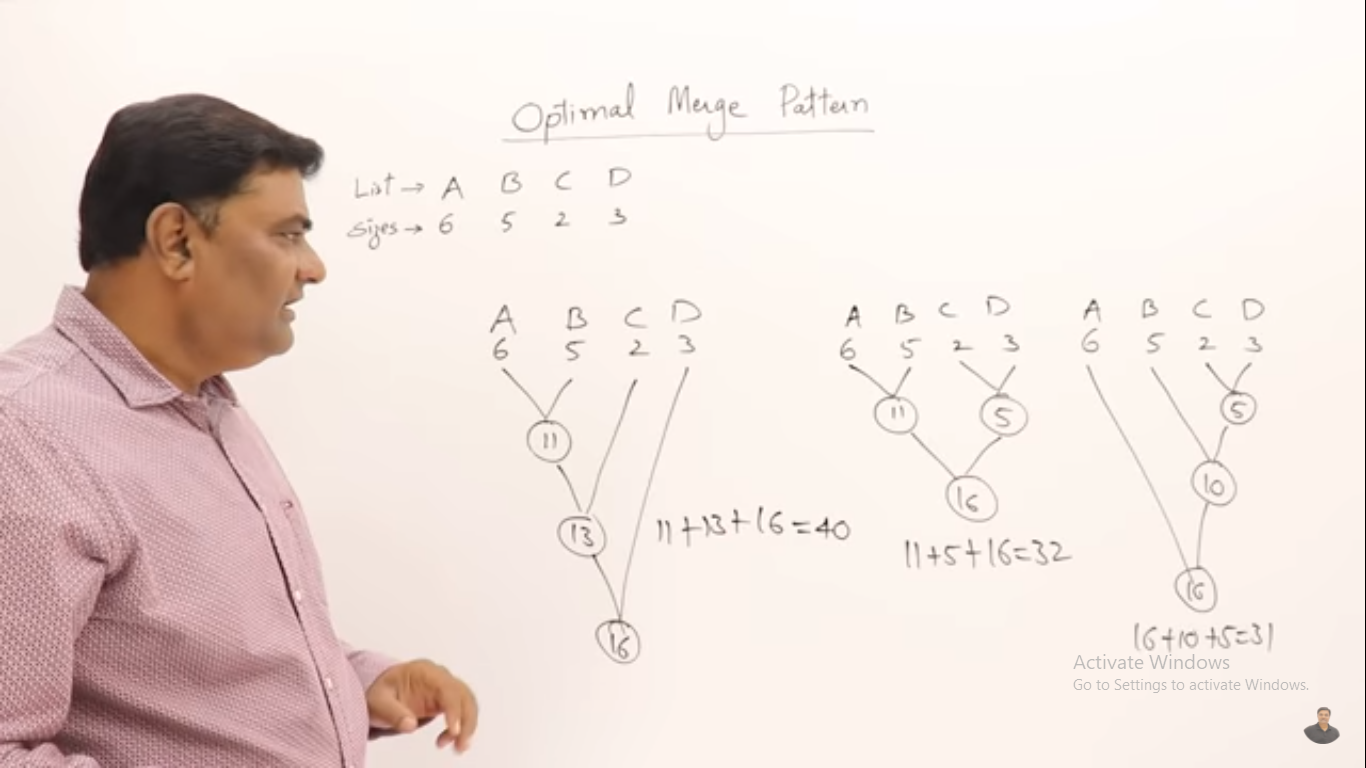 Optimal Merge Pattern
List → A B C D
Sizes → 6 5 2 3
A B C D
6 5 2 3
11
13
16
11+13+16=40
A B C D
6 5 2 3
11 5
16
11+5+16=32
A B C D
6 5 2 3
5
10
16
16+10+5=31
Activate Windows
Go to Settings to activate Windows.